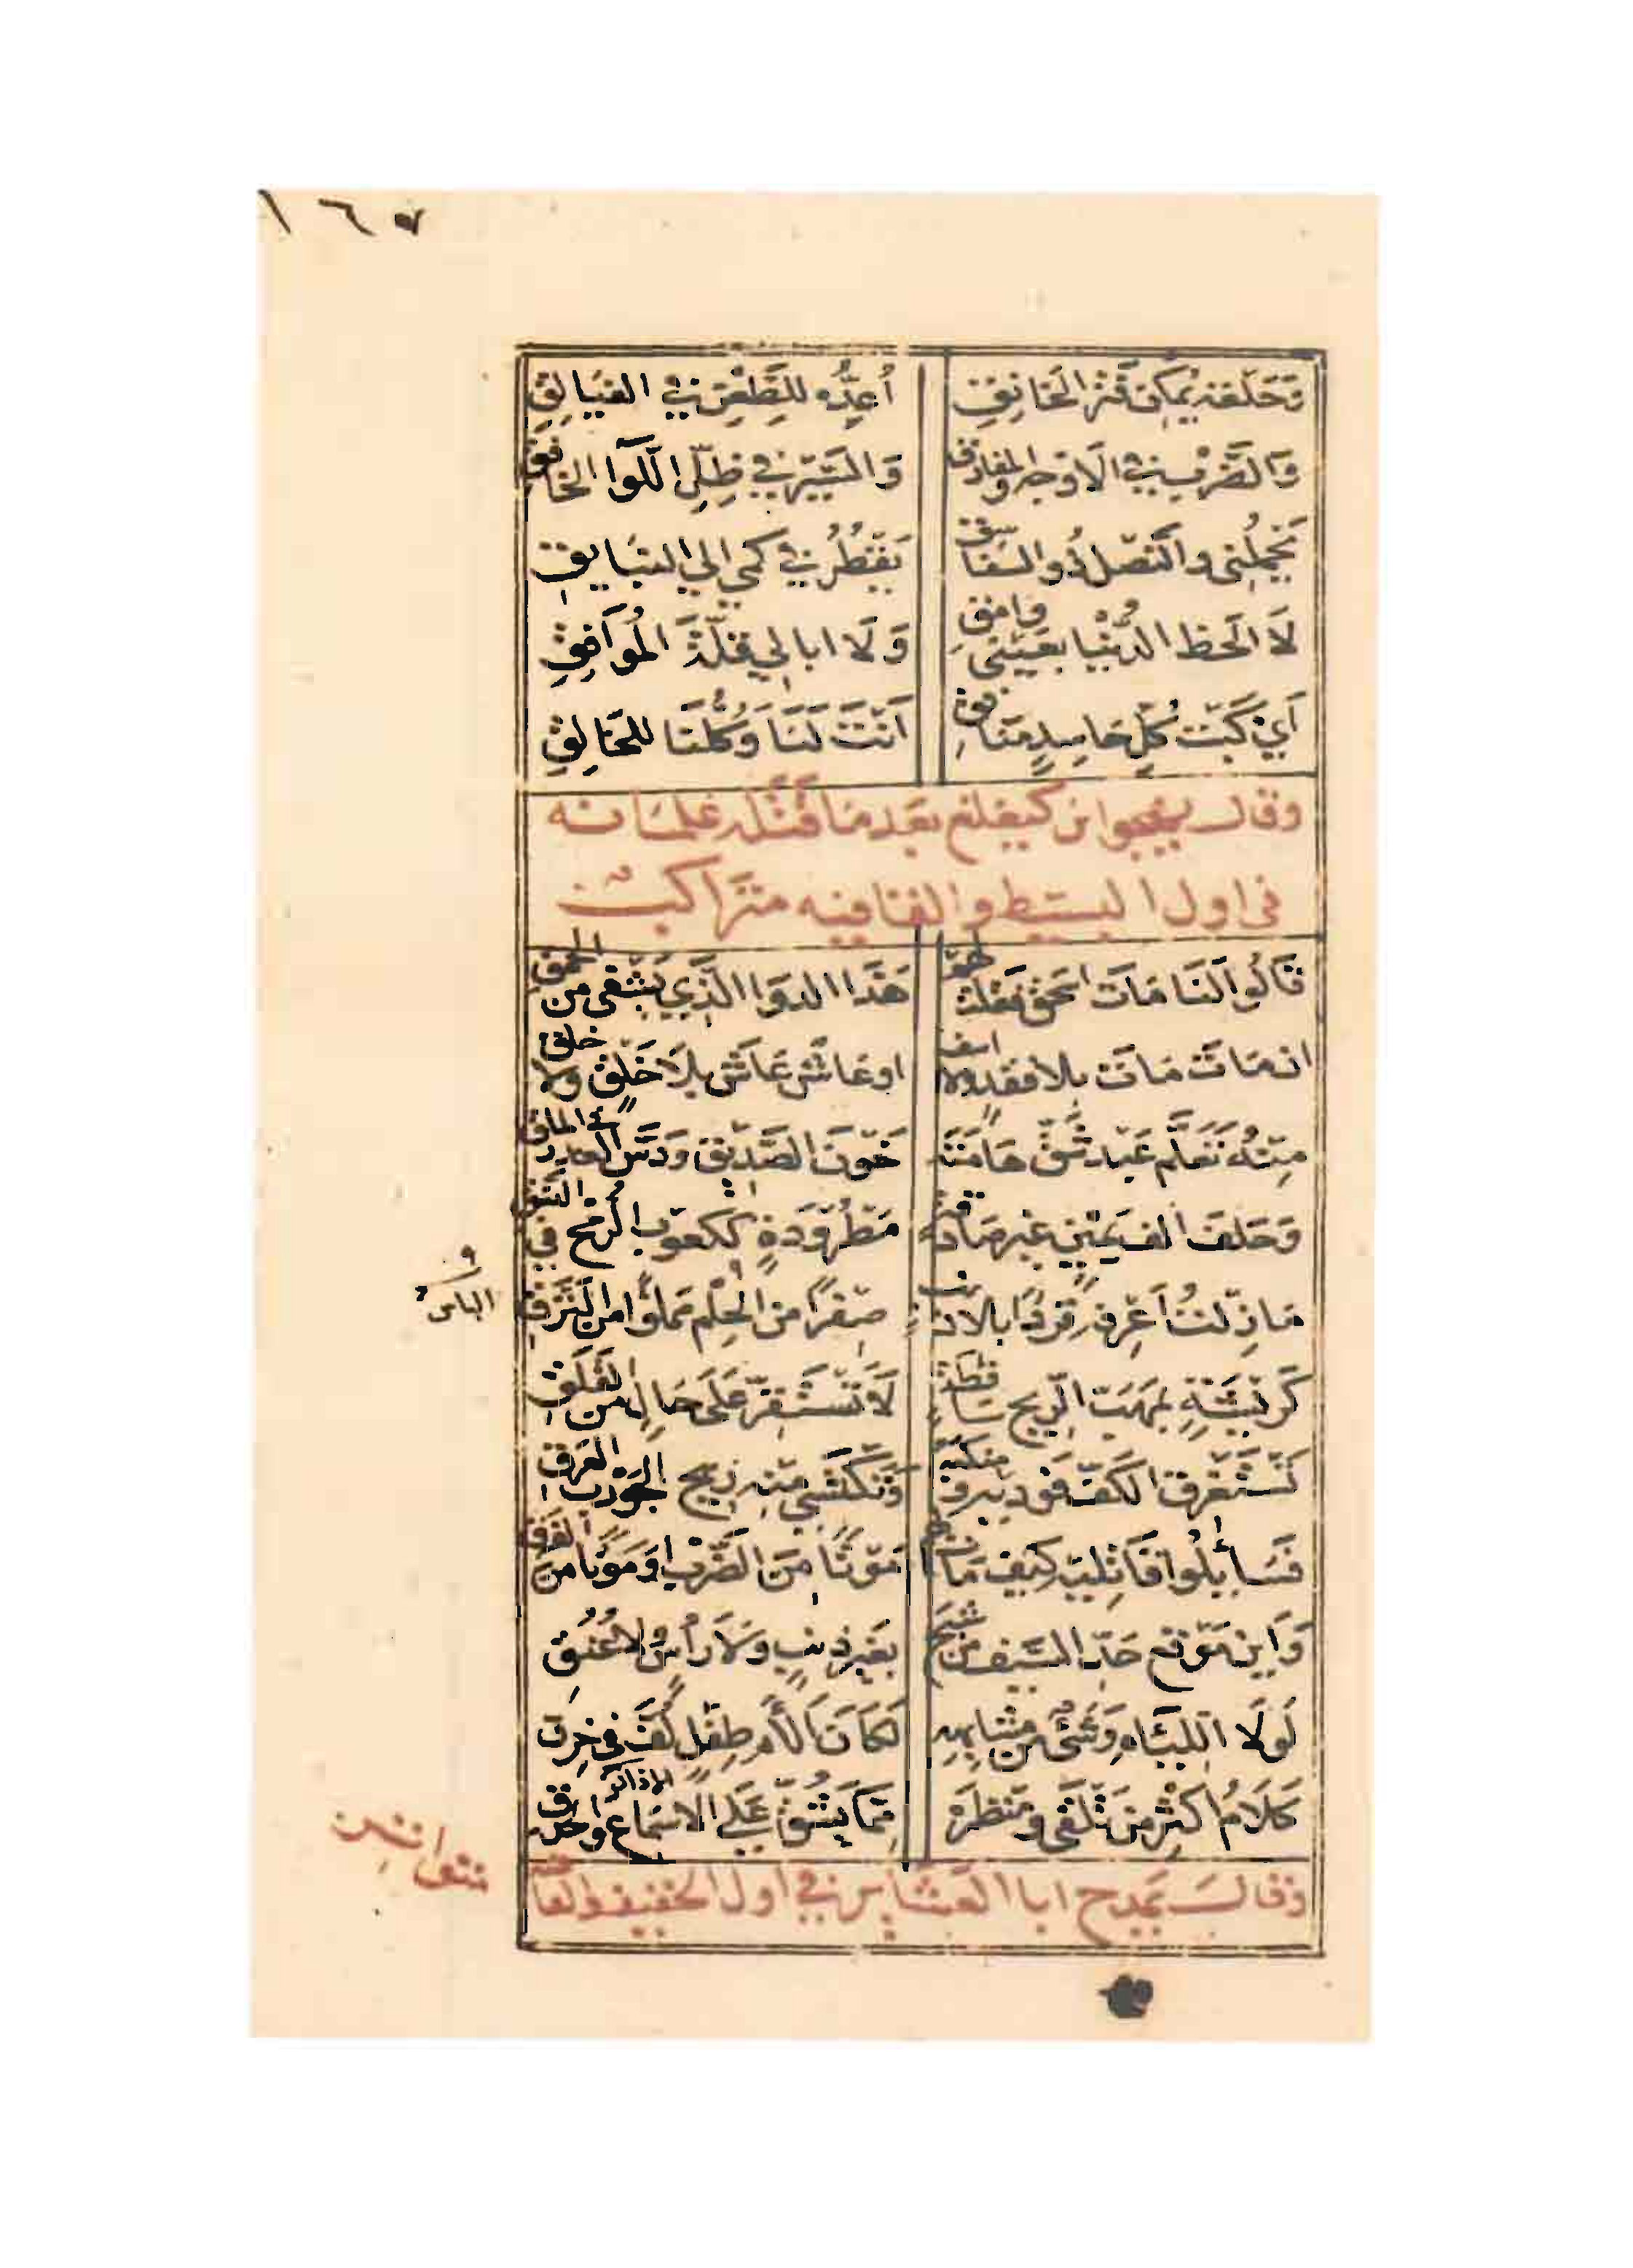 ١٦٧
وَحَلقة يُمكن فتر الخانق أُعِدُّه للطعن في الفيالق
وَالضرب في الاوجه والمفارق وَالسَّيْر في ظِلّ اللّوا الخافق
يَحْمِلُني والنصل ذُو السفاسق يَقْطُر في كمي الي البنايق
لَا الحظ الدُّنْيا بعَيْنَي وامق وَلَا ابالي قلّة المُوَافِقِ
أي كَبْت كُلّ حَاسِدٍ منَافق أنْتَ لَنَا وَكُلّنَا للخَالِقِ
وقال يهجوا بن كيغلغ بعَد مَا قَتَله غلمَانه
في اول البسَيط والقافيه متراكبْ
قَالُوا لنَا مَات اسحَق فقلت لهم هَذا الدوَا الَّذِي يَشفى من الحمق
ان مَات مَات بلا فقد ولا اسف او عَاش عَاش بِلَا خَلْق ولا خلق
مِنْهُ تَعَلَّم عَبْد شَقّ هَامَتَه خَوْنَ الصّديق وَدَسَّ الغدر في الملق
وَحَلفَ الف يَمِين غير صَادقة مَطْرُودَةٍ ككعوب الرّمْح في النسق
مَا زِلْتُ أعْرِفه قِرْدًا بلا ذنب صفرًا من الحلْم مملوًّا من النَّزَقِ
الباس
كَرِيشَةٍ بمَهَبّ الرّيح سَاقطة لَا تَسْتَقِرّ عَلَى حَالٍ من القَلَق
تَسْتَغْرق الكَفّ فَوديه ومنكبه وَتَكْتَسِي منه ريح الجَوْرب العَرق
فَسَايِلُوا قَاتِليه كيف مَات لهم مَوْتًا مِنَ الضَّرْب او مَوْتًا من الفرق
وَاين مَوْقع حَدّ السَّيف من شبح بغَير ذنبٍ وَلَا رأس ولا عُنُق
لَولَا اللّئَام وَشيء من مشَابهه لكَانَ ألأم طِفلٍ لُفّ في خِرَق
كَلَامُ اكثر مَن تَلْقَى ومَنظَره مِمَّا يَشُقّ عَلَى الاسمَاع والحدق
وقالَ يَمدح ابا العَشَاير في اول الخفيف والقافيه
متواتر